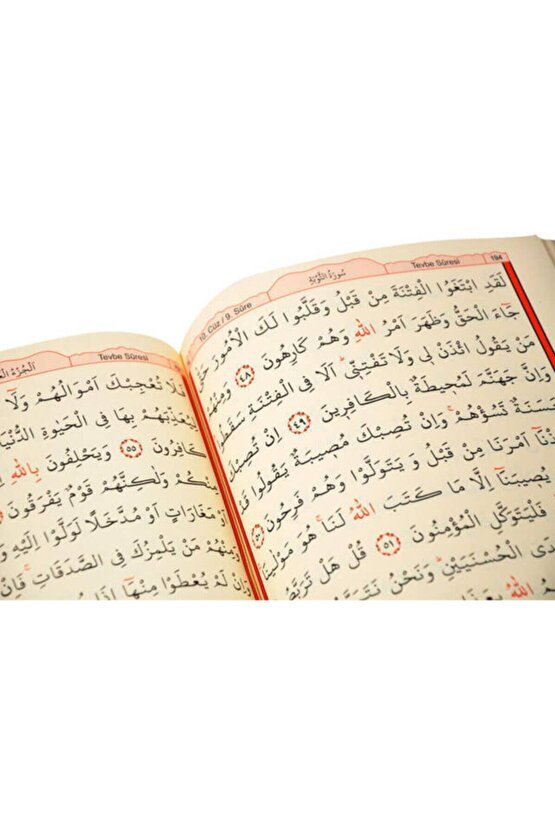 194
Tevbe Sûresi
سُورَةُ التَّوْبَةِ
10. Cüz / 9. Sûre
لَقَدِ ابْتَغَوُا الْفِتْنَةَ مِنْ قَبْلُ وَقَلَّبُوا لَكَ الْاُمُورَ حَتّٰى
جَٓاءَ الْحَقُّ وَظَهَرَ اَمْرُ اللّٰهِ وَهُمْ كَارِهُونَ ﴿٤٨﴾ وَمِنْهُمْ
مَنْ يَقُولُ ائْذَنْ ل۪ي وَلَا تَفْتِنّ۪يۜ اَلَا فِي الْفِتْنَةِ سَقَطُواۜ
وَاِنَّ جَهَنَّمَ لَمُح۪يطَةٌ بِالْكَافِر۪ينَ ﴿٤٩﴾ اِنْ تُصِبْكَ
حَسَنَةٌ تَسُؤْهُمْۚ وَاِنْ تُصِبْكَ مُص۪يبَةٌ يَقُولُوا قَدْ
اَمْرَنَا مِنْ قَبْلُ وَيَتَوَلَّوْا وَهُمْ فَرِحُونَ ﴿٥٠﴾
يُص۪يبَنَٓا اِلَّا مَا كَتَبَ اللّٰهُ لَنَاۚ هُوَ مَوْلٰينَا
فَلْيَتَوَكَّلِ الْمُؤْمِنُونَ ﴿٥١﴾ قُلْ هَلْ تَرَبَّصُونَ
الْحُسْنَيَيْنِۜ وَنَحْنُ نَتَرَبَّصُ
اللّٰهُ بِعَذَابٍ
Tevbe Sûresi
فَلَا تُعْجِبْكَ اَمْوَالُهُمْ وَلَٓا
لِيُعَذِّبَهُمْ بِهَا فِي الْحَيٰوةِ الدُّنْيَا
كَافِرُونَ ﴿٥٥﴾ وَيَحْلِفُونَ بِاللّٰهِ
مِنْكُمْ وَلٰكِنَّهُمْ قَوْمٌ يَفْرَقُونَ
اَوْ مَغَارَاتٍ اَوْ مُدَّخَلًا لَوَلَّوْا اِلَيْهِ
وَمِنْهُمْ مَنْ يَلْمِزُكَ فِي الصَّدَقَاتِۚ فَاِنْ
وَاِنْ لَمْ يُعْطَوْا مِنْهَٓا اِذَا